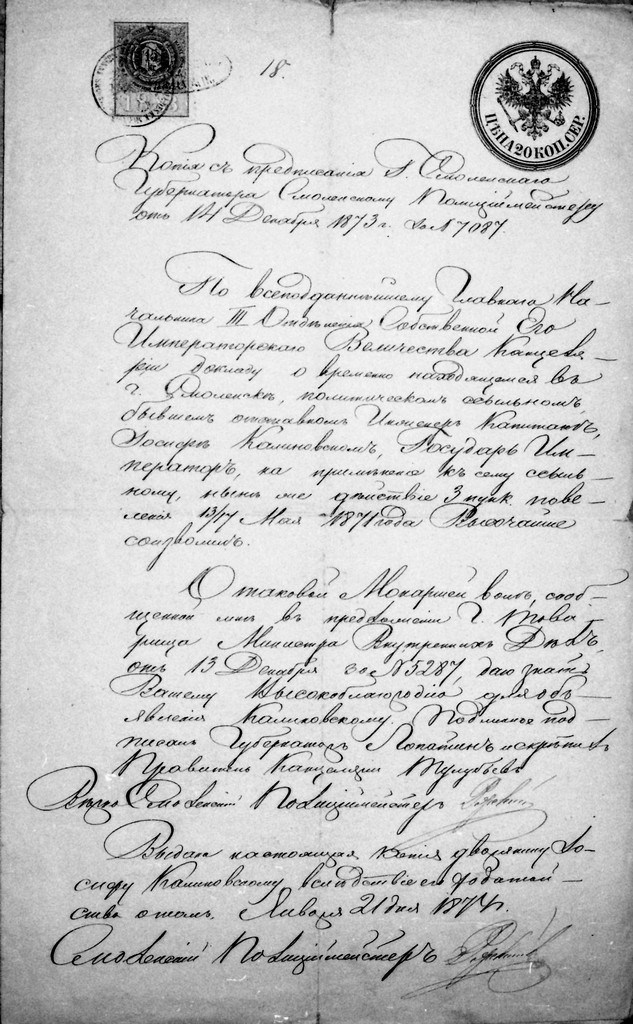 18.
ЦѢНА 20 КОП. СЕР.
Копія съ предписанія Г. Смоленскаго
Губернатора Смоленскому Полиціймейстеру
отъ 14 Декабря 1873 г. за № 7087.
По всеподданнѣйшему Главнаго На-
чальника III Отдѣленія Собственной Его
Императорскаго Величества Канцеля-
ріи докладу о временно находящемся въ
г. Смоленскѣ, политическомъ ссыльномъ,
бывшемъ отставномъ Инженеръ Капитанѣ,
Іосифѣ Калиновскомъ, Государь Им-
ператоръ, на примѣненіе къ сему ссыль-
ному, нынѣ же дѣйствіе 3 пунк. пове-
ленія 13/17 Мая 1871 года Высочайше
соизволилъ.
О таковой Монаршей волѣ, сооб-
щенной мнѣ въ предложеніи Г. Това-
рища Министра Внутреннихъ Дѣлъ,
отъ 13 Декабря за № 5287, даю знать
Вашему Высокоблагородію для объ-
явленія Калиновскому. Подлинное под-
писалъ Губернаторъ Лопатинъ и скрѣпилъ
Правитель Канцеляріи Тулубьевъ
Вѣрно: Смоленскій Полиціймейстеръ
Выдана настоящая копія дворянину Іо-
сифу Калиновскому вслѣдствіе его ходатай-
ства о томъ. Января 21 дня 1874 г.
Смоленскій Полиціймейстеръ